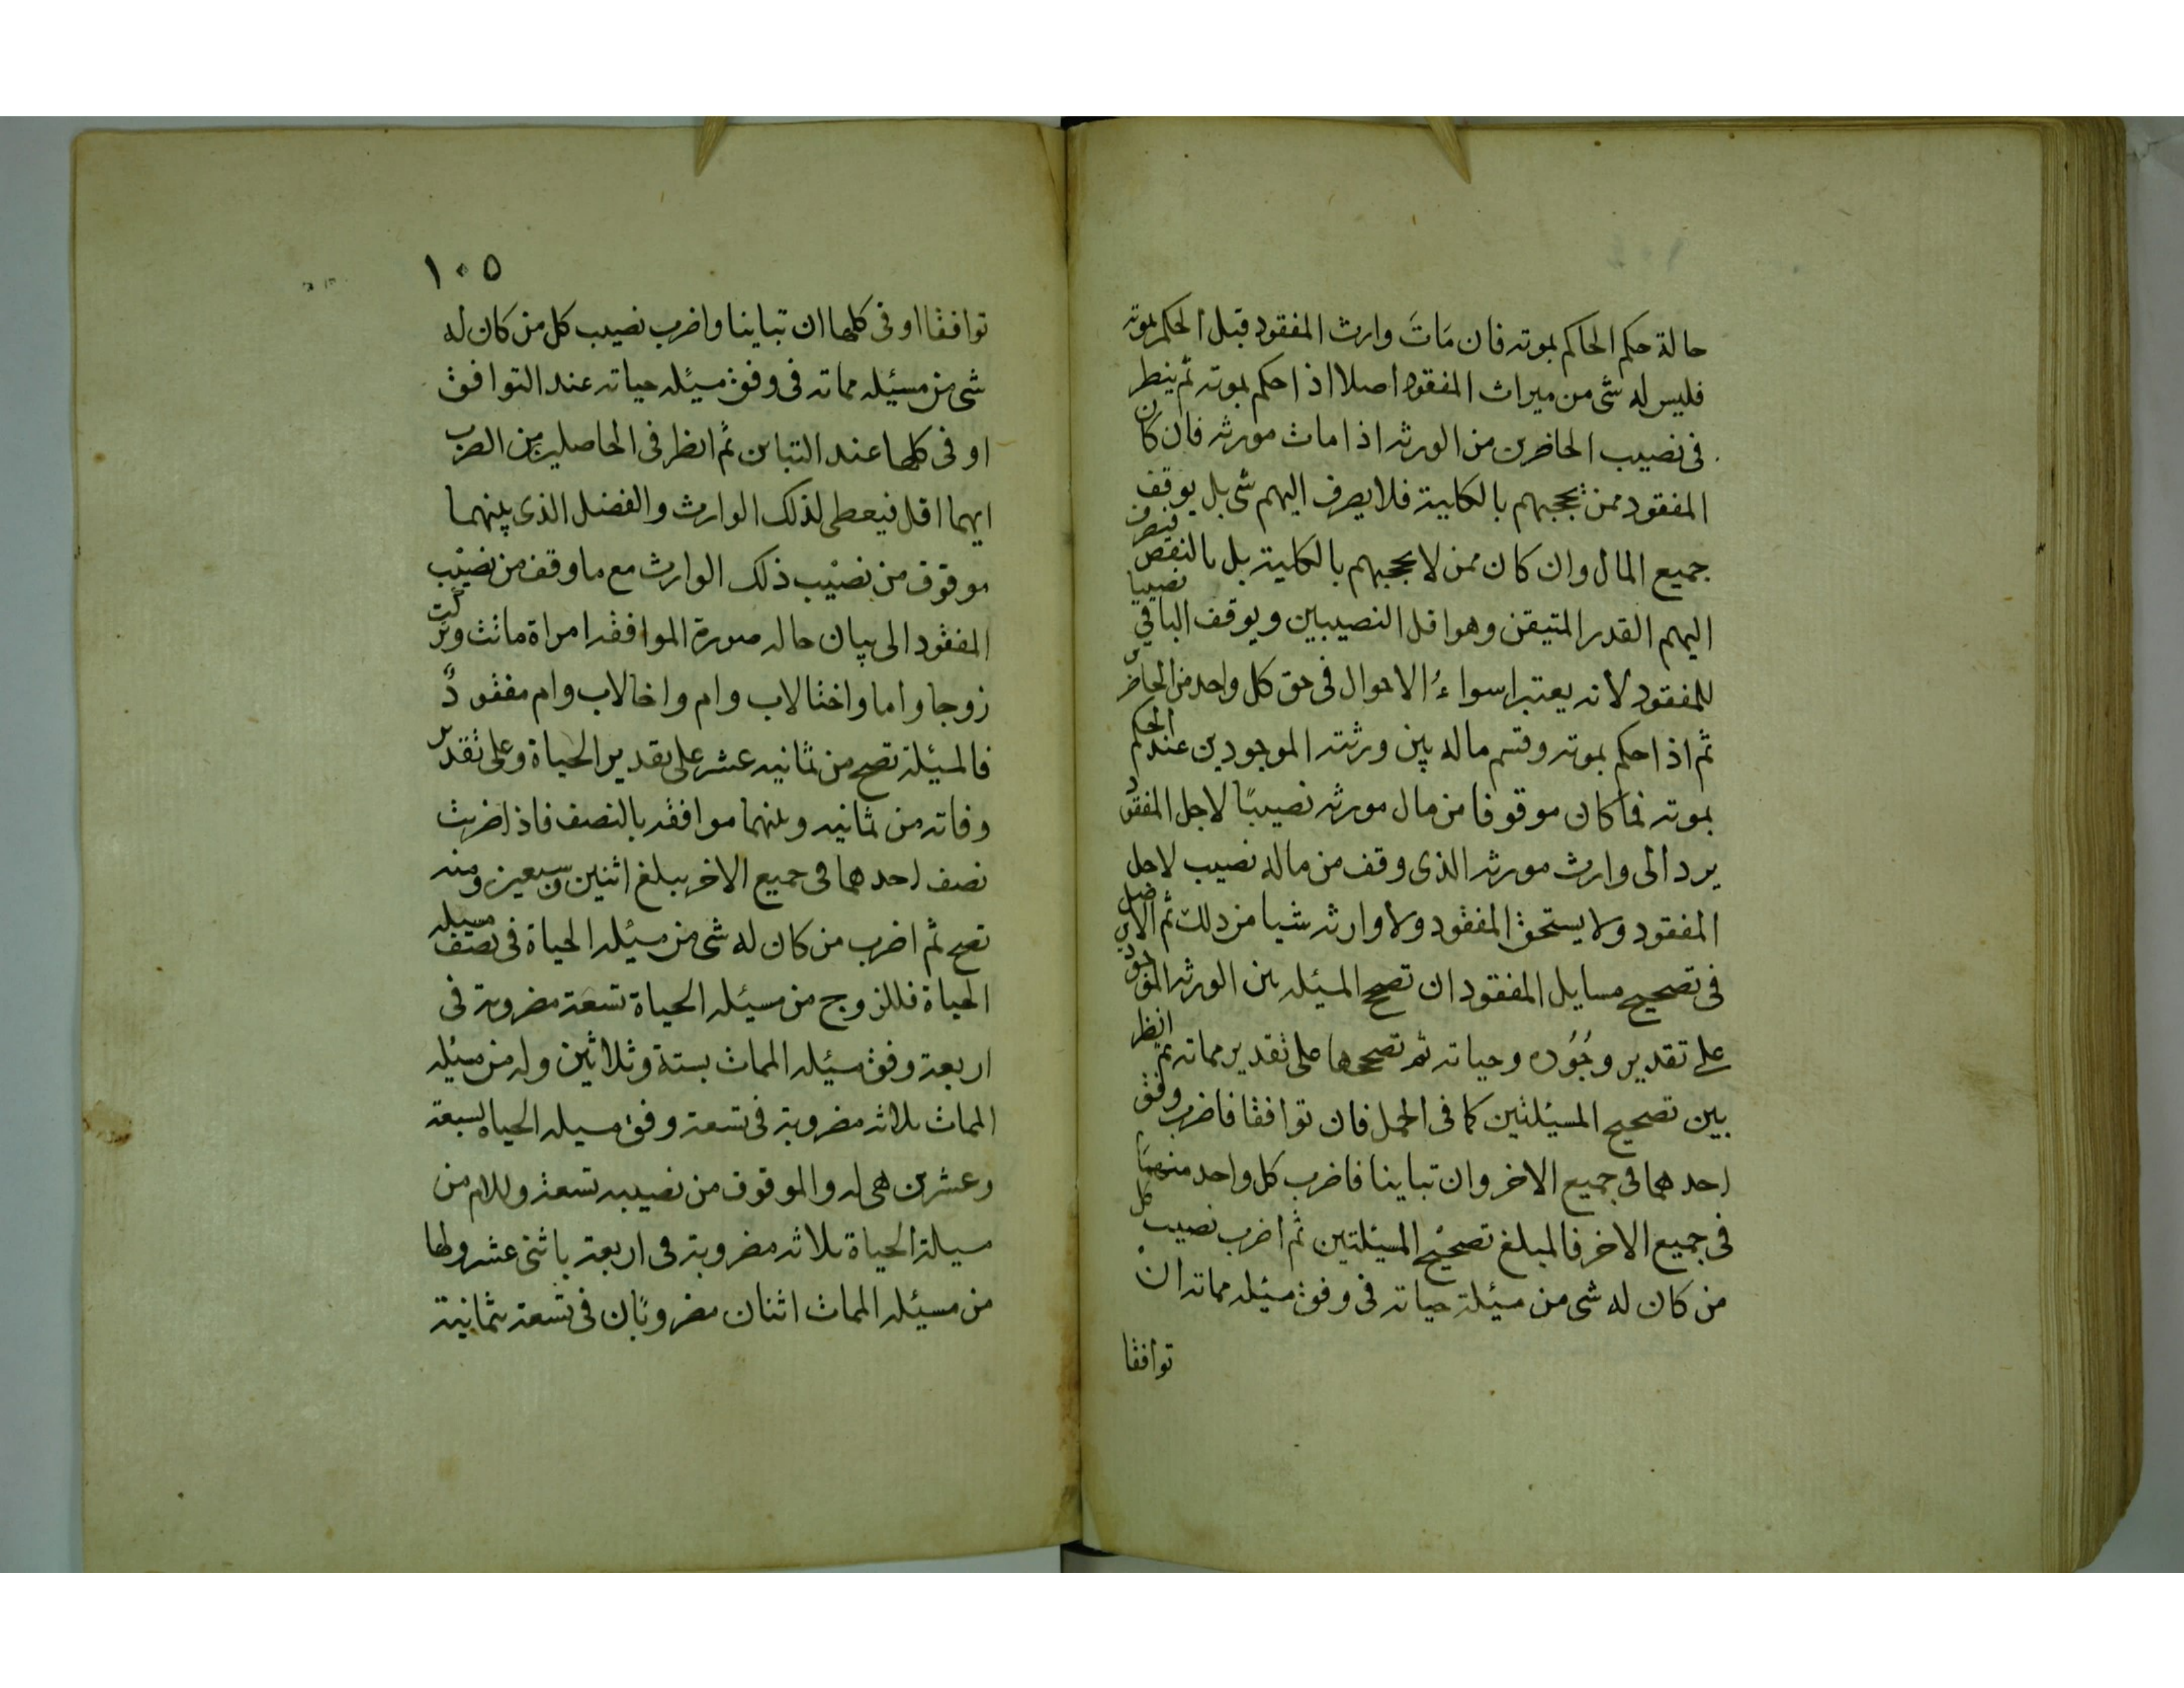 حالة حكم الحاكم بموته فان مَاتَ وارث المفقود قبل الحكم بموته
فليس له شى من ميراث المفقود اصلا اذا حكم بموته ثم ينظر
فى نصيب الحاضرين من الورثه اذا مات مورثه فان كان
المفقود ممن يحجبهم بالكلية فلا يصرف اليهم شى بل يوقف
جميع المال وان كان ممن لا يحجبهم بالكلية بل بالنقص فيصرف
اليهم القدر المتيقن وهو اقل النصيبين ويوقف الباقي نصيبا
للمفقود لانه يعتبر اسواءُ الاحوال فى حق كل واحد من الحاضرين
ثم اذا حكم بموته وقسم ماله بين ورثته الموجودين عند الحكم
بموته فما كان موقوفا من مال مورثه نصيبًا لاجل المفقود
يرد الى وارث مورثه الذى وقف من ماله نصيب لاجل
المفقود ولا يستحق المفقود ولا وارثه شيا من ذلك ثم الاصل
فى تصحيح مسايل المفقود ان تصح المسئله بين الورثه الموجود
على تقدير وجُوُده وحياته ثم تصححها على تقدير مماته ثم انظر
بين تصحيح المسئلتين كما فى الحمل فان توافقا فاضرب وفق
احدهما فى جميع الاخر وان تباينا فاضرب كل واحد منهمَا
فى جميع الاخر فالمبلغ تصحيح المسئلتين ثم اضرب نصيب كل
من كان له شى من مسئلة حياته فى وفق مسئله مماته ان
توافقا
١٠٥
توافقا او فى كلها ان تباينا واضرب نصيب كل من كان له
شى من مسئله مماته فى وفق مسئله حياته عند التوافق
او فى كلها عند التباين ثم انظر فى الحاصلين من الضرب
ايهما اقل فيعطى لذلك الوارث والفضل الذى بينهما
موقوف من نصيب ذلك الوارث مع ما وقف من نصيب
المفقود الى بيان حاله صورة الموافقه امراة ماتت وتركت
زوجا واما واختا لاب وام واخا لاب وام مفقودٌ
فالمسئلة تصح من ثمانيه عشر على تقدير الحياة وعلى تقدير
وفاته من ثمانيه وبينهما موافقه بالنصف فاذا ضربت
نصف احدهما فى جميع الاخر يبلغ اثنين وسبعين ومنه
تصح ثم اضرب من كان له شى من مسئله الحياة فى نصف مسيله
الحياة فللزوج من مسئله الحياة تسعة مضروبة فى
اربعة وفق مسئله الممات بستة وثلاثين وله من مسئله
الممات ثلاثه مضروبة فى تسعة وفق مسيله الحياه بسبعة
وعشرين هى له والموقوف من نصيبه تسعة وللام من
مسيلة الحياة ثلاثه مضروبة فى اربعة باثنى عشر ولها
من مسئله الممات اثنان مضروبان فى تسعة بثمانية